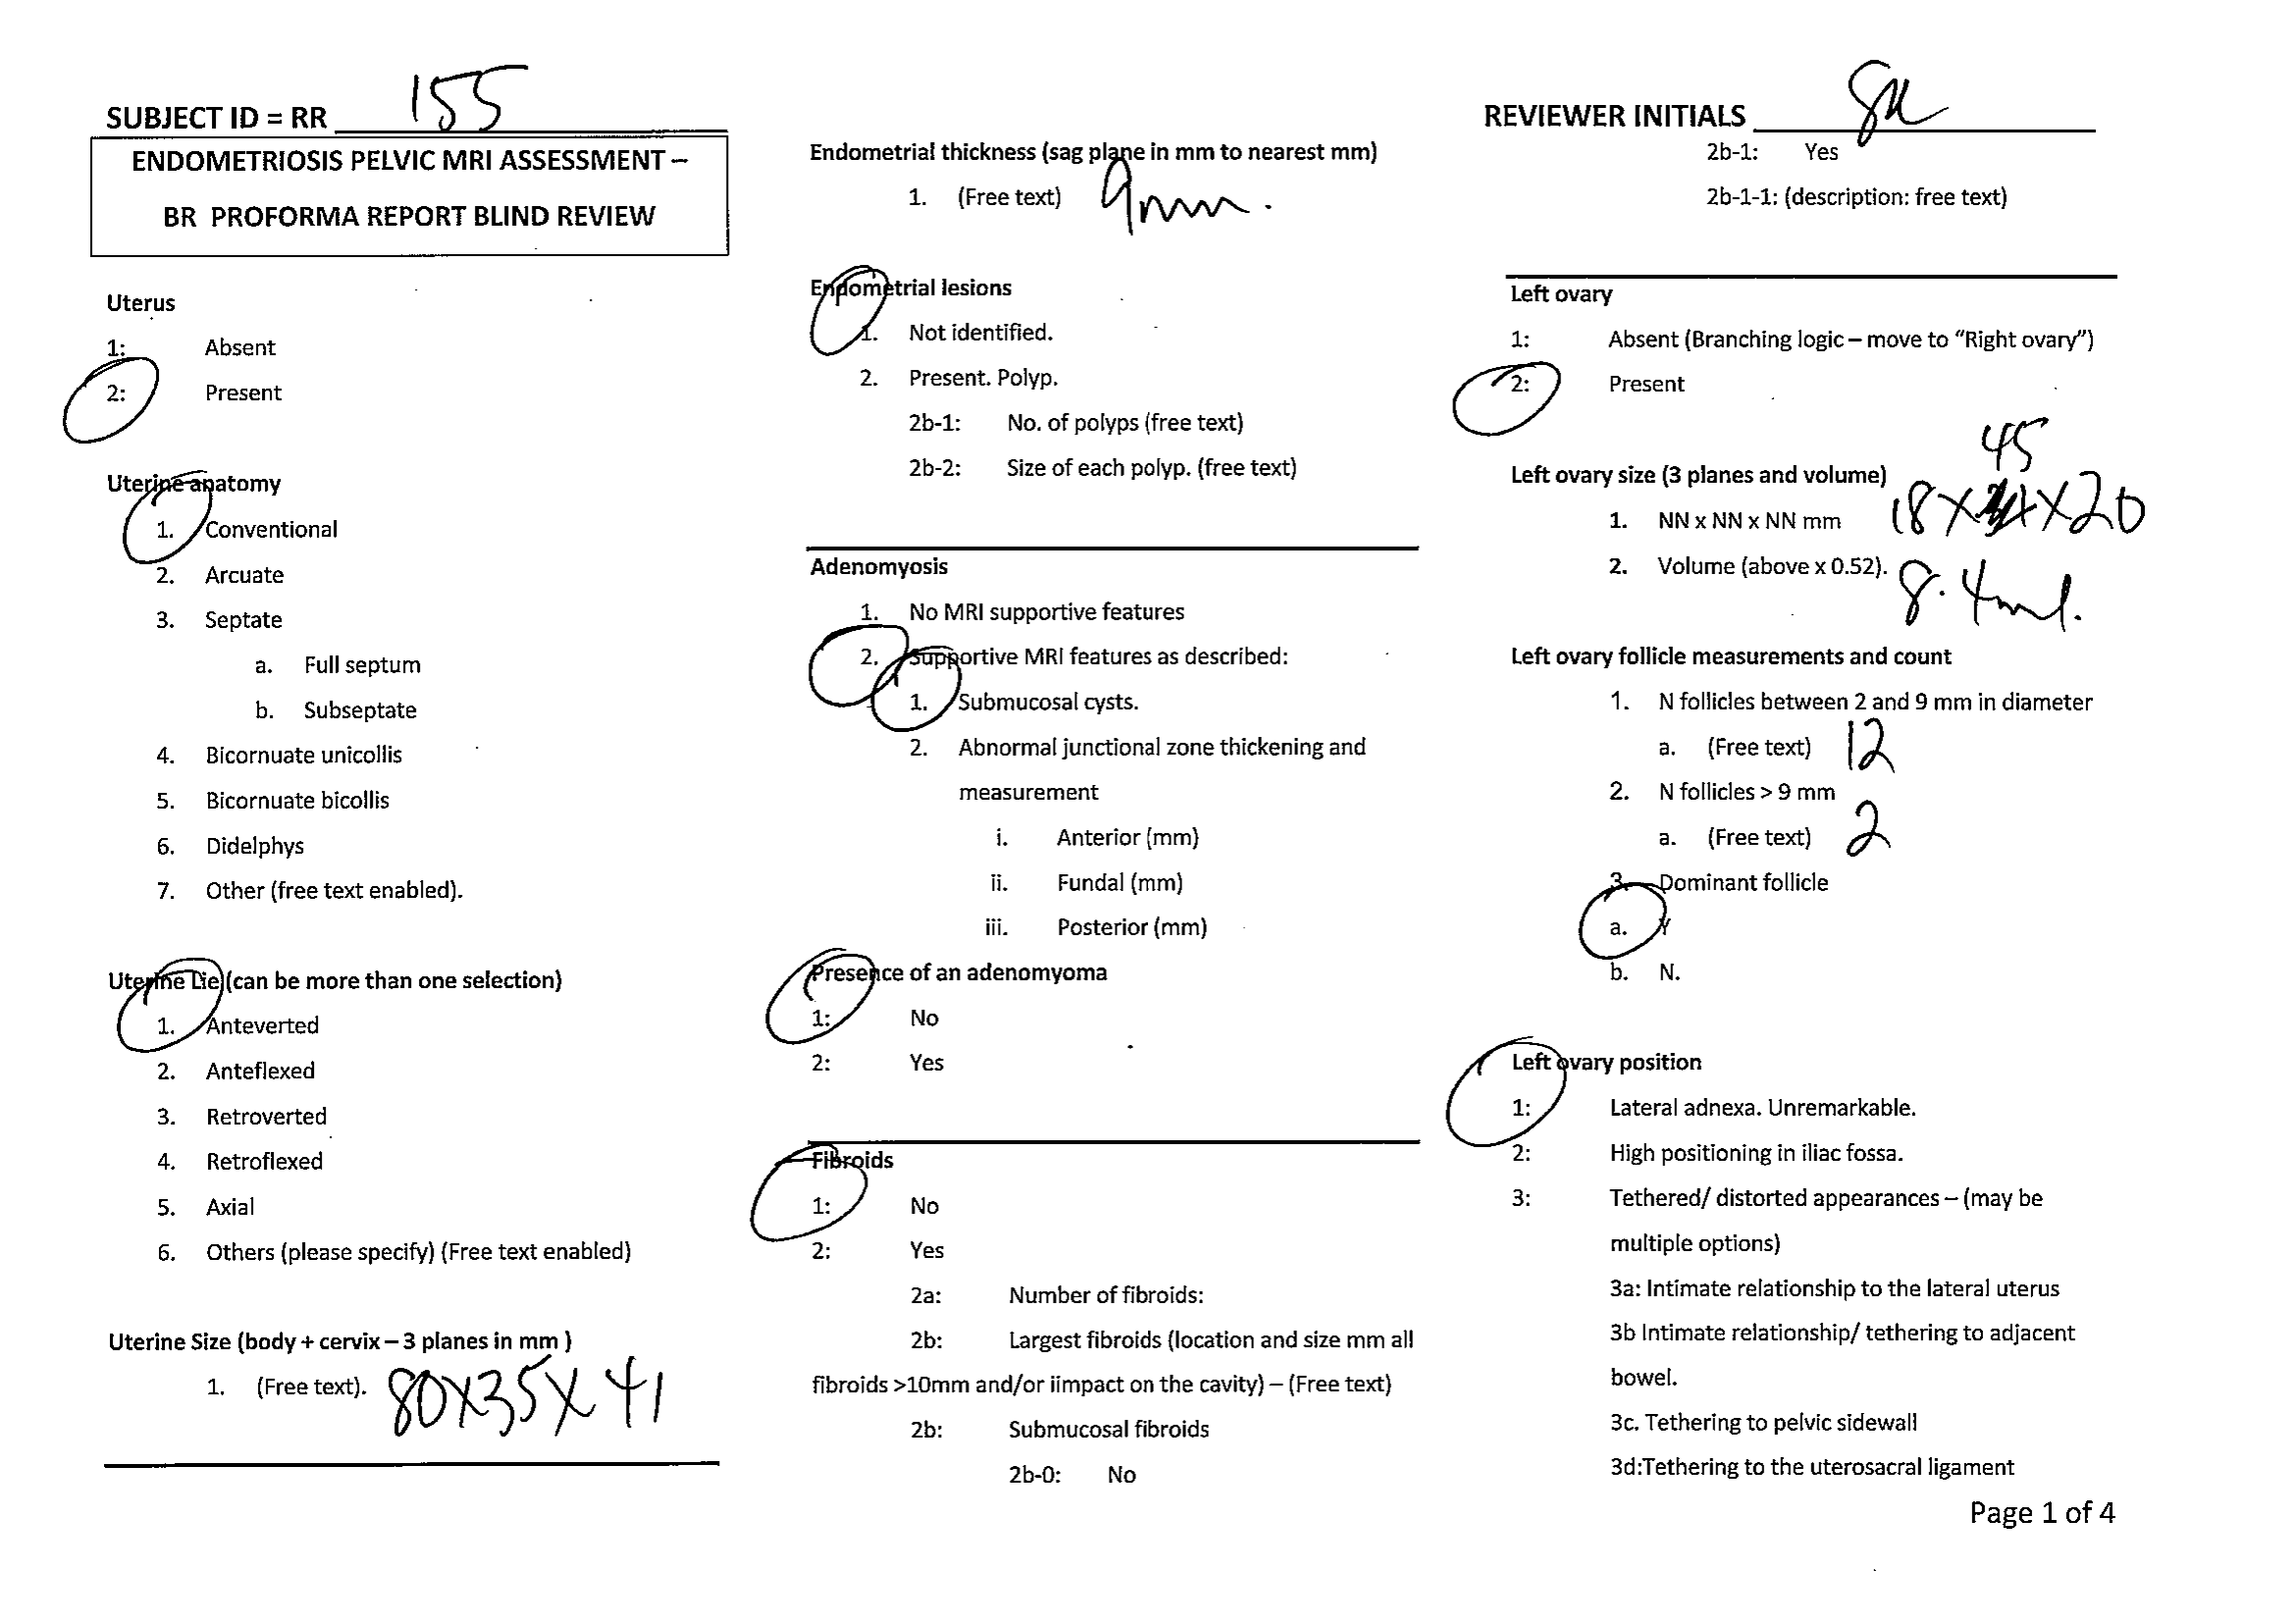 SUBJECT ID = RR 155
ENDOMETRIOSIS PELVIC MRI ASSESSMENT –
BR PROFORMA REPORT BLIND REVIEW
Uterus
1: Absent
2: Present
Uterine anatomy
1. Conventional
2. Arcuate
3. Septate
a. Full septum
b. Subseptate
4. Bicornuate unicollis
5. Bicornuate bicollis
6. Didelphys
7. Other (free text enabled).
Uterine Lie (can be more than one selection)
1. Anteverted
2. Anteflexed
3. Retroverted
4. Retroflexed
5. Axial
6. Others (please specify) (Free text enabled)
Uterine Size (body + cervix – 3 planes in mm )
1. (Free text). 80x35x41
Endometrial thickness (sag plane in mm to nearest mm)
1. (Free text) 9mm.
Endometrial lesions
1. Not identified.
2. Present. Polyp.
2b-1: No. of polyps (free text)
2b-2: Size of each polyp. (free text)
Adenomyosis
1. No MRI supportive features
2. Supportive MRI features as described:
1. Submucosal cysts.
2. Abnormal junctional zone thickening and
measurement
i. Anterior (mm)
ii. Fundal (mm)
iii. Posterior (mm)
Presence of an adenomyoma
1: No
2: Yes
Fibroids
1: No
2: Yes
2a: Number of fibroids:
2b: Largest fibroids (location and size mm all
fibroids >10mm and/or iimpact on the cavity) – (Free text)
2b: Submucosal fibroids
2b-0: No
REVIEWER INITIALS
2b-1: Yes
2b-1-1: (description: free text)
Left ovary
1: Absent (Branching logic – move to “Right ovary”)
2: Present
45
Left ovary size (3 planes and volume)
1. NN x NN x NN mm 18 x x 20
2. Volume (above x 0.52). 8.4ml.
Left ovary follicle measurements and count
1. N follicles between 2 and 9 mm in diameter
a. (Free text) 12
2. N follicles > 9 mm
a. (Free text) 2
3. Dominant follicle
a. Y
b. N.
Left ovary position
1: Lateral adnexa. Unremarkable.
2: High positioning in iliac fossa.
3: Tethered/ distorted appearances – (may be
multiple options)
3a: Intimate relationship to the lateral uterus
3b Intimate relationship/ tethering to adjacent
bowel.
3c. Tethering to pelvic sidewall
3d:Tethering to the uterosacral ligament
Page 1 of 4